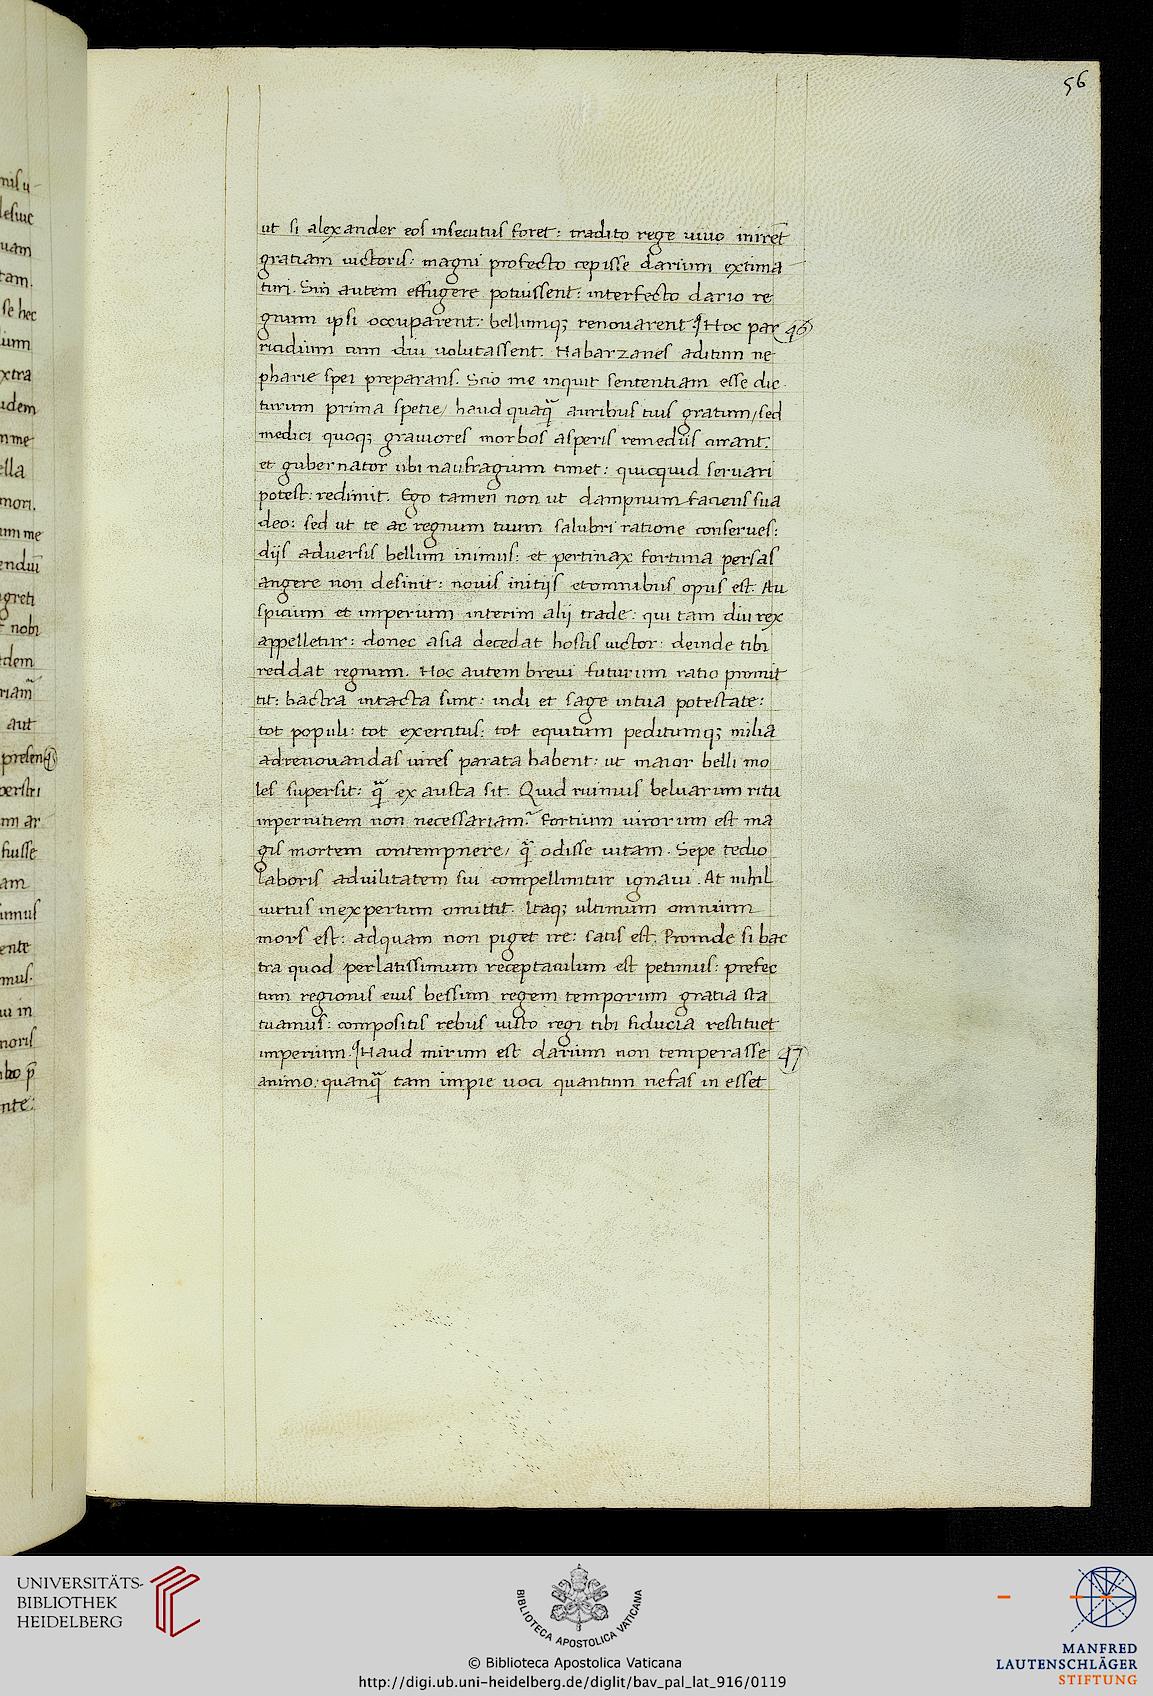 56
ut si alexander eos insecutus foret: tradito rege uiuo iniret
gratiam uictoris: magni profecto cepisse darium extima
turi. Sin autem effugere potuissent: interfecto dario re
gnum ipsi occuparent: bellumq; renouarent. ¶Hoc par 46
ricidium cum diu uolutassent. Habarzanes aditum ne
pharie spei preparans. Scio me inquit sententiam esse dic
turum prima spetie/ haud quaq̃ auribus tuis gratum/sed
medici quoq; grauiores morbos asperis remedijs curant.
et gubernator ubi naufragium timet: quicquid seruari
potest: redimit. Ego tamen non ut dampnum faciens sua
deo: sed ut te ac regnum tuum salubri ratione conserues:
dijs aduersis bellum inimus: et pertinax fortuna persas
angere non desinit: nouis initijs etomnibus opus est. Au
spicium et imperium interim alij trade: qui tam diu rex
appelletur: donec asia decedat hostis uictor: deinde tibi
reddat regnum. Hoc autem breui futurum ratio promit
tit: bactra intacta sunt: indi et sage intua potestate:
tot populi: tot exercitus: tot equitum peditumq; milia
adrenouandas uires parata habent: ut maior belli mo
les supersit: q̃ ex austa sit. Quid ruimus beluarum ritu
inpernitiem non necessariam? Fortium uirorum est ma
gis mortem contempnere/ q̃ odisse uitam. Sepe tedio
laboris aduilitatem sui compellimitur ignaui. At nihil
uirtus inexpertum omittit. Itaq; ultimum omnium
mors est: adquam non piget ire: satis est. Proinde si bac
tra quod perlatissimum receptaculum est petimus: prefec
tum regionis eius bessum regem temporum gratia sta
tuamus: compositis rebus iusto regi tibi fiducia restituet
imperium. ¶Haud mirum est darium non temperasse 47
animo: quanq̃ tam impie uoci quantum nefas in esset
UNIVERSITÄTS-
BIBLIOTHEK
HEIDELBERG
BIBLIOTECA APOSTOLICA VATICANA
MANFRED
LAUTENSCHLÄGER
STIFTUNG
© Biblioteca Apostolica Vaticana
http://digi.ub.uni-heidelberg.de/diglit/bav_pal_lat_916/0119